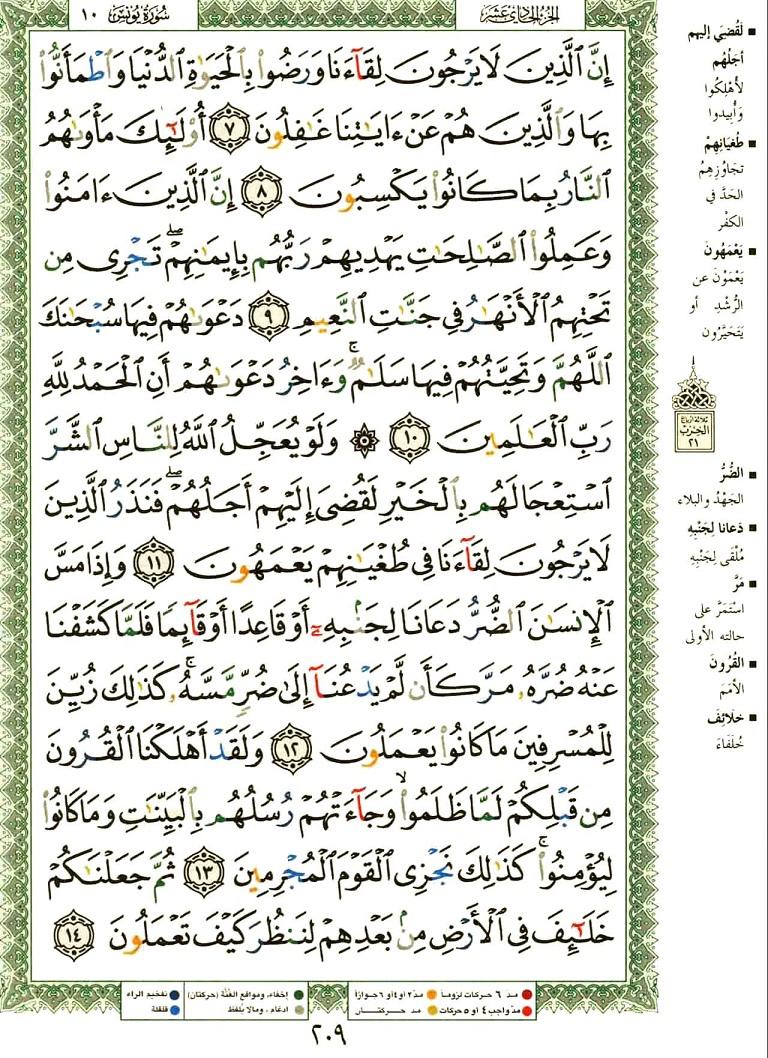 سُورَةُ يُونُس ١٠
الجزء الحادي عشر
إِنَّ ٱلَّذِينَ لَا يَرْجُونَ لِقَآءَنَا وَرَضُوا۟ بِٱلْحَيَوٰةِ ٱلدُّنْيَا وَٱطْمَأَنُّوا۟
بِهَا وَٱلَّذِينَ هُمْ عَنْ ءَايَـٰتِنَا غَـٰفِلُونَ ٧ أُو۟لَـٰٓئِكَ مَأْوَىٰهُمُ
ٱلنَّارُ بِمَا كَانُوا۟ يَكْسِبُونَ ٨ إِنَّ ٱلَّذِينَ ءَامَنُوا۟
وَعَمِلُوا۟ ٱلصَّـٰلِحَـٰتِ يَهْدِيهِمْ رَبُّهُم بِإِيمَـٰنِهِمْ ۖ تَجْرِى مِن
تَحْتِهِمُ ٱلْأَنْهَـٰرُ فِى جَنَّـٰتِ ٱلنَّعِيمِ ٩ دَعْوَىٰهُمْ فِيهَا سُبْحَـٰنَكَ
ٱللَّهُمَّ وَتَحِيَّتُهُمْ فِيهَا سَلَـٰمٌ ۚ وَءَاخِرُ دَعْوَىٰهُمْ أَنِ ٱلْحَمْدُ لِلَّهِ
رَبِّ ٱلْعَـٰلَمِينَ ١٠ ۞ وَلَوْ يُعَجِّلُ ٱللَّهُ لِلنَّاسِ ٱلشَّرَّ
ٱسْتِعْجَالَهُم بِٱلْخَيْرِ لَقُضِىَ إِلَيْهِمْ أَجَلُهُمْ ۖ فَنَذَرُ ٱلَّذِينَ
لَا يَرْجُونَ لِقَآءَنَا فِى طُغْيَـٰنِهِمْ يَعْمَهُونَ ١١ وَإِذَا مَسَّ
ٱلْإِنسَـٰنَ ٱلضُّرُّ دَعَانَا لِجَنۢبِهِۦٓ أَوْ قَاعِدًا أَوْ قَآئِمًا فَلَمَّا كَشَفْنَا
عَنْهُ ضُرَّهُۥ مَرَّ كَأَن لَّمْ يَدْعُنَآ إِلَىٰ ضُرٍّ مَّسَّهُۥ ۚ كَذَٰلِكَ زُيِّنَ
لِلْمُسْرِفِينَ مَا كَانُوا۟ يَعْمَلُونَ ١٢ وَلَقَدْ أَهْلَكْنَا ٱلْقُرُونَ
مِن قَبْلِكُمْ لَمَّا ظَلَمُوا۟ ۙ وَجَآءَتْهُمْ رُسُلُهُم بِٱلْبَيِّنَـٰتِ وَمَا كَانُوا۟
لِيُؤْمِنُوا۟ ۚ كَذَٰلِكَ نَجْزِى ٱلْقَوْمَ ٱلْمُجْرِمِينَ ١٣ ثُمَّ جَعَلْنَـٰكُمْ
خَلَـٰٓئِفَ فِى ٱلْأَرْضِ مِنۢ بَعْدِهِمْ لِنَنظُرَ كَيْفَ تَعْمَلُونَ ١٤
لَقُضِيَ إليهم
أجَلُهُم
لأُهْلِكُوا
وَأُبِيدوا
طُغيَانِهِمْ
تجَاوُزِهِمُ
الحَدَّ في
الكفْر
يَعْمَهُونَ
يَعْمَوْن عن
الرُّشْدِ أو
يَتَحَيَّرُون
ثلاثة أرباع
الحِزْبُ
٢١
الضُّرُّ
الجَهْدُ والبلاء
دَعانا لِجَنْبِهِ
مُلْقًى لِجَنْبِهِ
مَرَّ
اسْتَمَرَّ على
حالته الأولى
القُرُونَ
الأُمَمَ
خلائِفَ
خُلَفاءَ
مدّ ٦ حركات لزوماً
مدّ ٢ أو ٤ أو ٦ جوازاً
إخفاء، ومواقع الغُنَّة (حركتان)
تفخيم الراء
مدّ واجب ٤ أو ٥ حركات
مد حركتان
ادغام، ومالا يُلفظ
قلقلة
٢٠٩